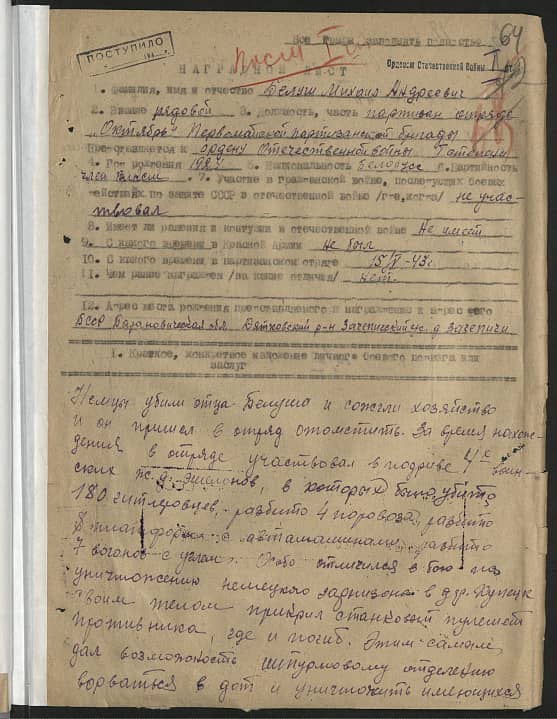 64
Все графы заполнять полностью
ПОСТУПИЛО
Посм
Орденом Отечественной Войны I ст
НАГРАДНОЙ ЛИСТ
1. Фамилия, имя и отчество Белуш Михаил Андреевич
2. Звание рядовой 3. Должность, часть партизан отряда
"Октябрь" Первомайской партизанской бригады
Представляется к ордену Отечественной войны I степени
4. Год рождения 1927 5. Национальность Белорус 6. Партийность
член ВЛКСМ 7. Участие в гражданской войне, последующих боевых
действиях по защите СССР и отечественной войне /где, когда/ не учас-
твовал
8. Имеет ли ранения и контузии в отечественной войне Не имеет
9. С какого времени в Красной Армии не был
10. С какого времени в партизанском отряде 15/ -43г.
11. Чем ранее награжден /за какие отличия/ нет.
12. Адрес места рождения представляемого к награждению и адрес его
БССР Барановическая обл. Дятловский р-н Зачепичский с/с. д. Зачепичи
1. Краткое, конкретное изложение личного боевого подвига или
заслуг
Немцы убили отца Белуша и сожгли хозяйство
и он пришел в отряд отомстить. За время нахож-
дения в отряде участвовал в подриве 4х воин-
ских ж.д. эшелонов, в которых было убито
180 гитлеровцев, разбито 4 поровоза, разбито
8 платформ с автомашинами, разбито
7 вогонов с углем. Особо отличился в бою по
уничтожению немецкого гарнизона в дер. Купецк
Своим телом прикрил станковий пулемет
противника, где и погиб. Этим самым
дал возможность штурмовому отделению
ворваться в дот и уничтожить имеющихся